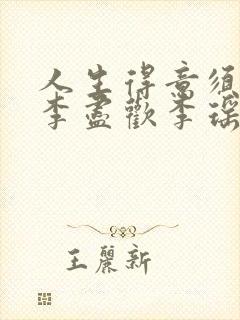 人生得意须
李盡歡李瑶
王麗新